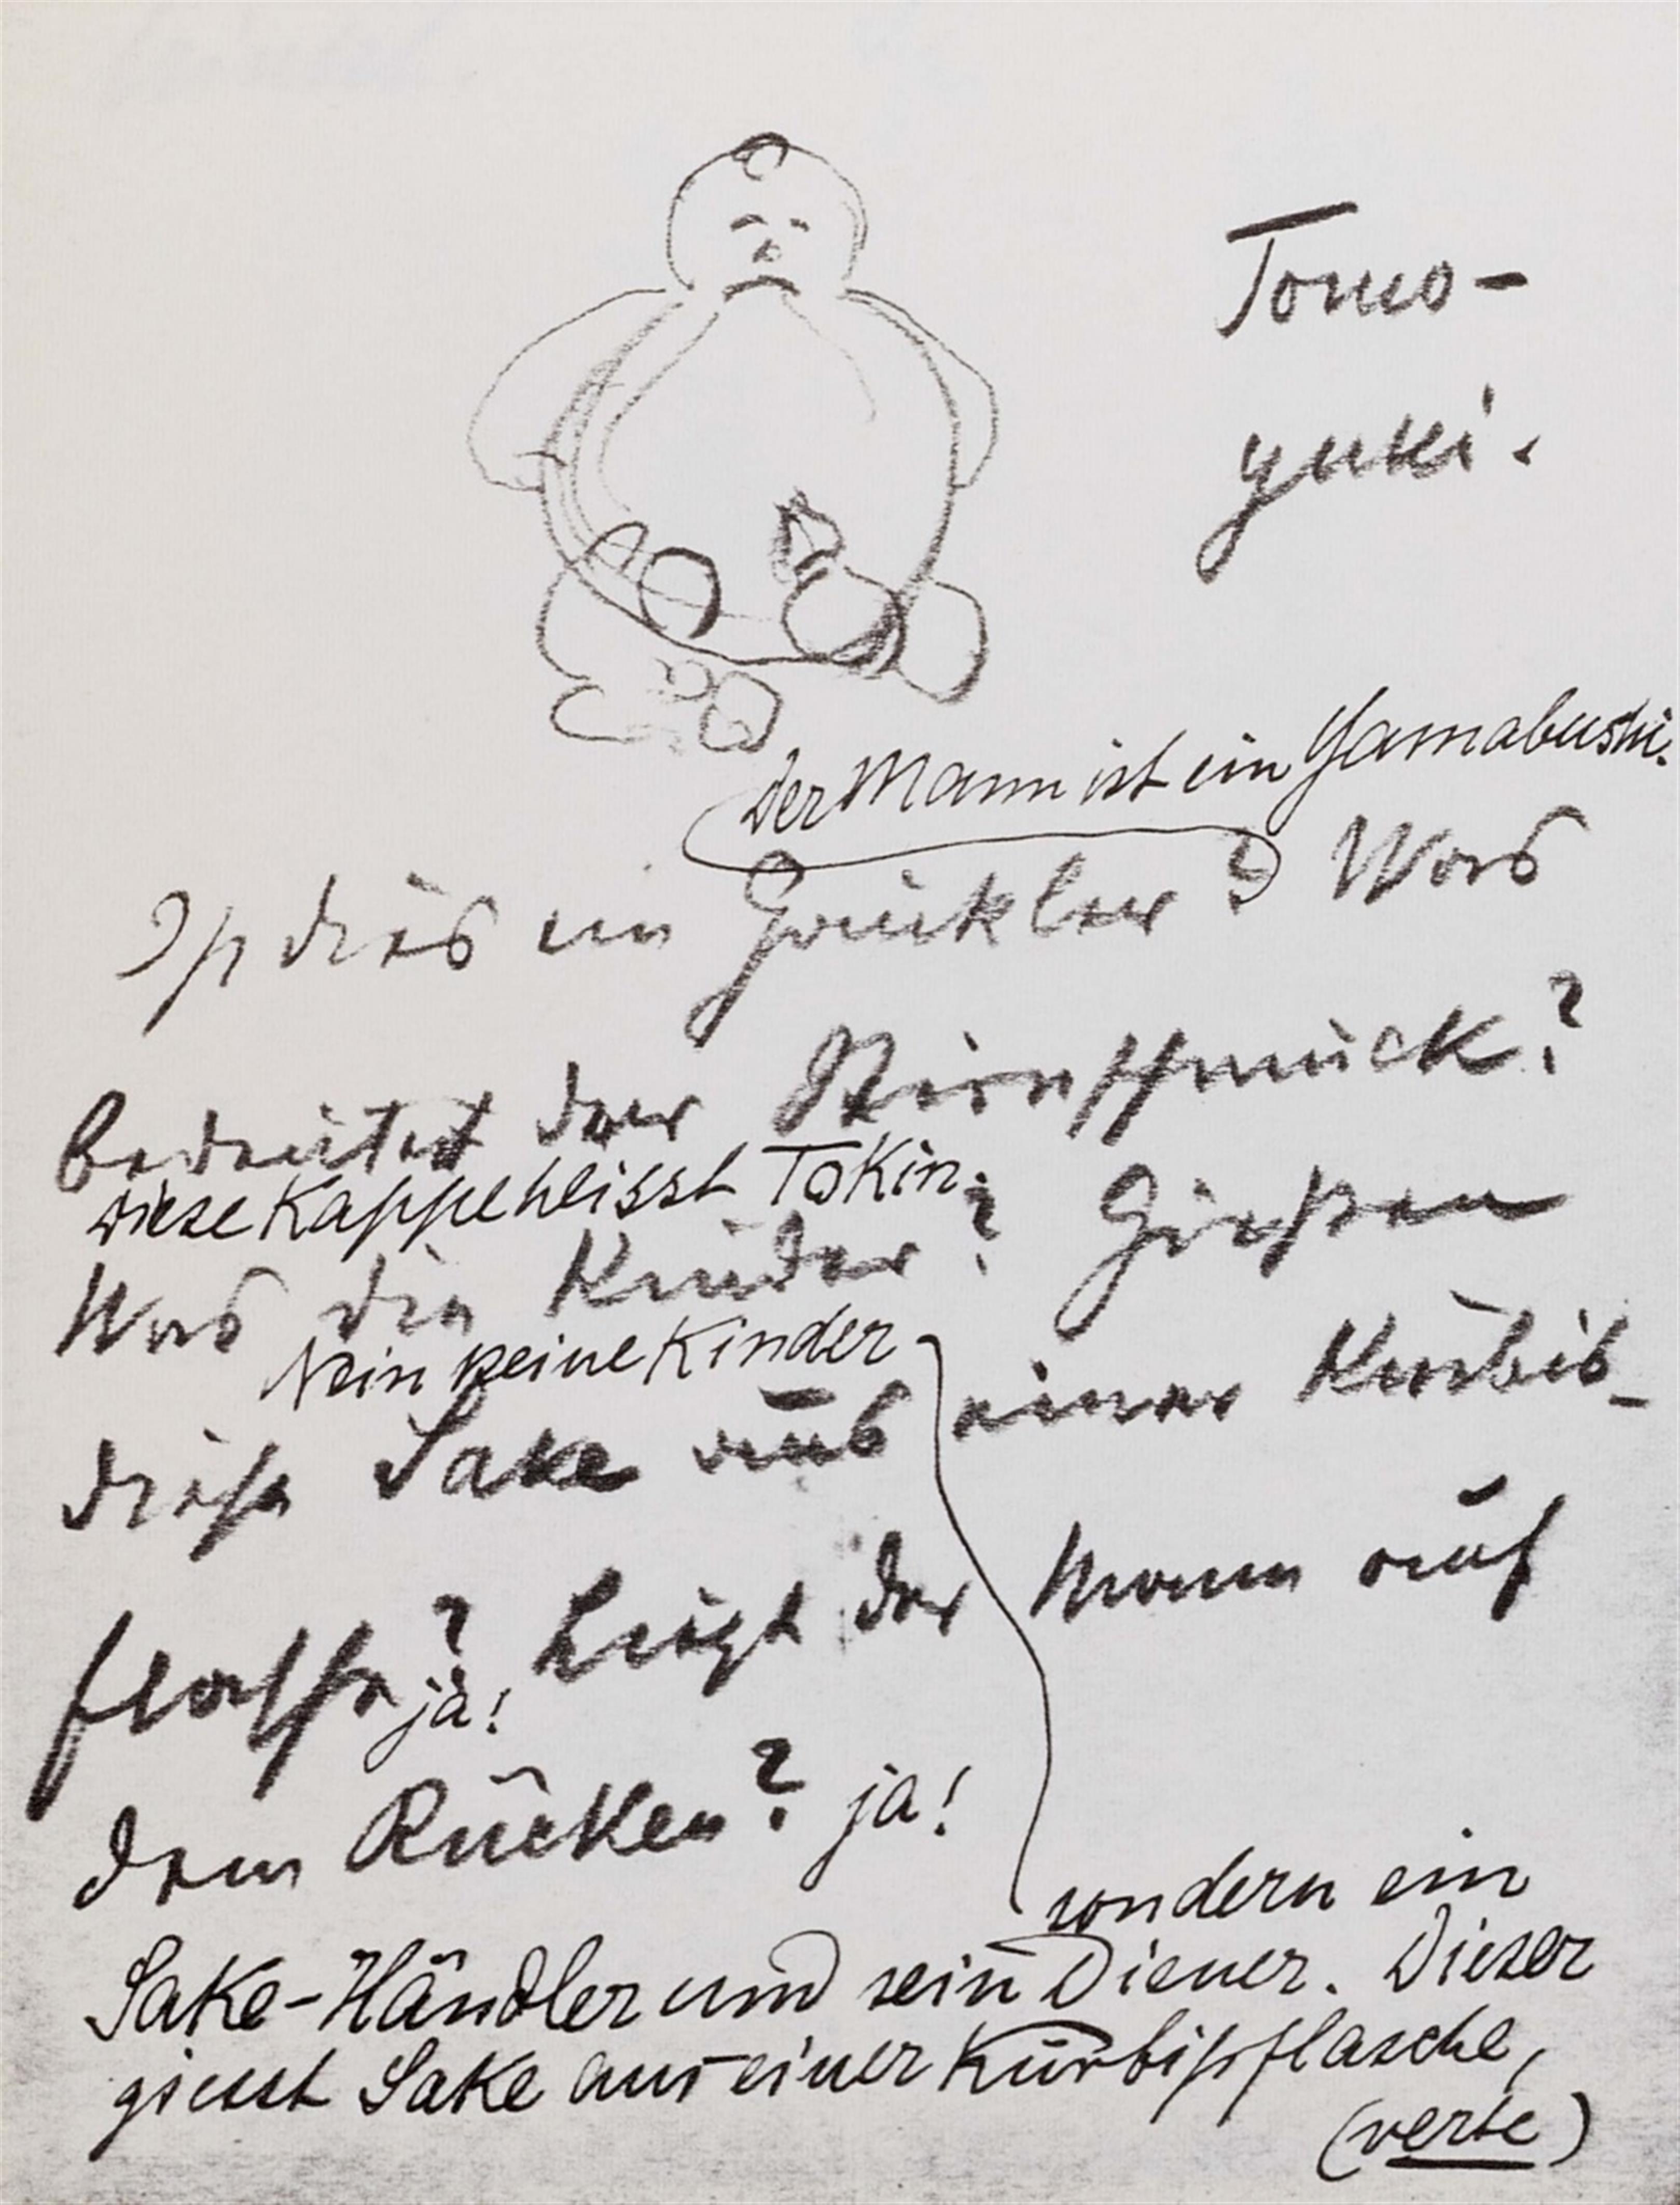 Tomo-
yuki.
Der Mann ist ein Yamabushi.
Ist dies ein Gaukler? Was
bedeutet der Stirnschmuck?
Diese Kappe heisst Tokin.
Was die Kinder? Gießen
Nein keine Kinder
diese Sake aus einer Kürbis-
flasche? Liegt der Mann auf
ja!
dem Rücken? ja!
sondern ein
Sake-Händler und sein Diener. Dieser
giesst Sake aus einer Kürbisflasche,
(verte)